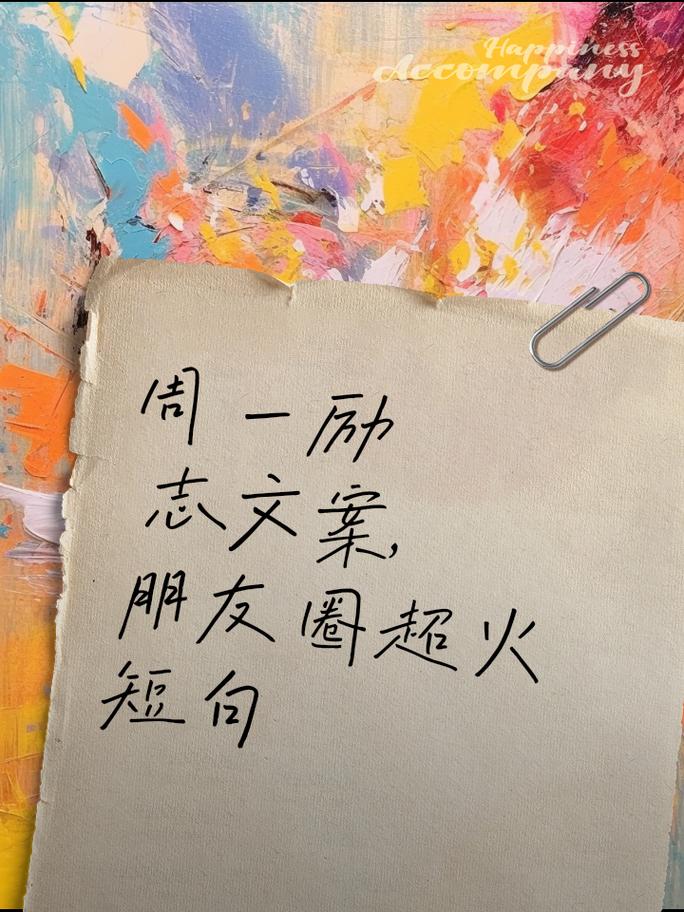 Happiness
Accompany
周一励
志文案,
朋友圈超火
短句